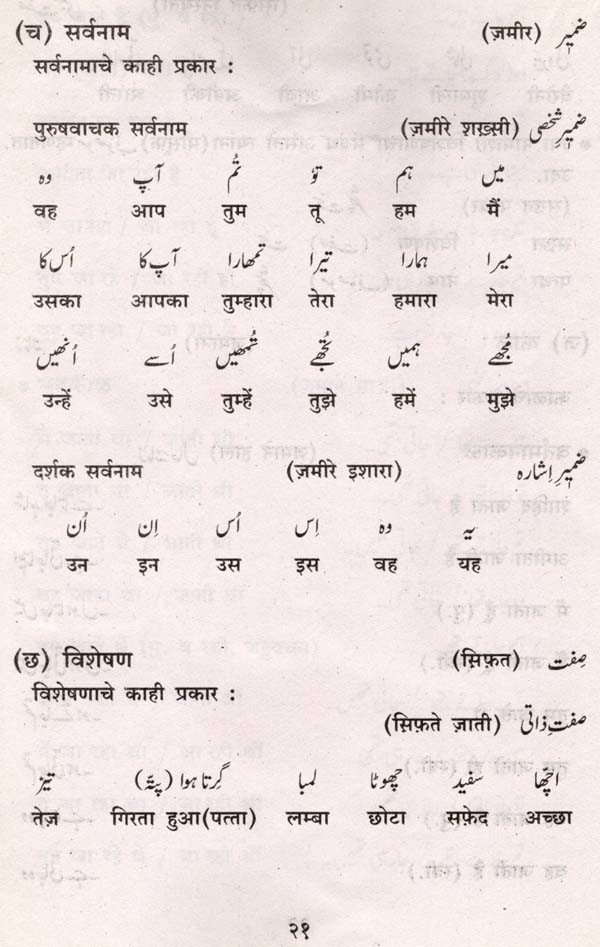 (च) सर्वनाम (ज़मीर) ضمیر
सर्वनामाचे काही प्रकार :
पुरुषवाचक सर्वनाम (ज़मीरे शख़्सी) ضمیرِ شخصی
میں ہم تؤ تُم آپ وہ
वह आप तुम तू हम मैं
میرا ہمارا تیرا تمھارا آپ کا اُس کا
उसका आपका तुम्हारा तेरा हमारा मेरा
مُجھے ہمیں تُجھے تُمھیں اُسے اُنھیں
उन्हें उसे तुम्हें तुझे हमें मुझे
दर्शक सर्वनाम (ज़मीरे इशारा) ضمیرِ اِشارہ
یہ وہ اِس اُس اِن اُن
उन इन उस इस वह यह
(छ) विशेषण (सिफ़त) صِفت
विशेषणाचे काही प्रकार :
(सिफ़ते ज़ाती) صفتِ ذاتی
اچّھا سفید چھوٹا لمبا گِرتا ہوا (پتّہ) تیز
तेज़ गिरता हुआ(पत्ता) लम्बा छोटा सफ़ेद अच्छा
२१